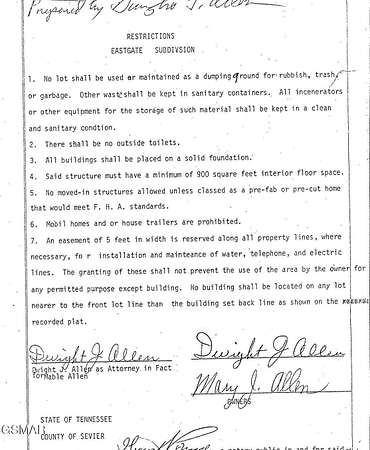 Prepared by Dwight J. Allen
RESTRICTIONS
EASTGATE SUBDIVISION
1. No lot shall be used or maintained as a dumping ground for rubbish, trash,
or garbage. Other waste shall be kept in sanitary containers. All incenerators
or other equipment for the storage of such material shall be kept in a clean
and sanitary condtion.
2. There shall be no outside toilets.
3. All buildings shall be placed on a solid foundation.
4. Said structure must have a minimum of 900 square feet interior floor space.
5. No moved-in structures allowed unless classed as a pre-fab or pre-cut home
that would meet F. H. A. standards.
6. Mobil homes and or house trailers are prohibited.
7. An easement of 5 feet in width is reserved along all property lines, where
necessary, fo r installation and mainteance of water, telephone, and electric
lines. The granting of these shall not prevent the use of the area by the owner for
any permitted purpose except building. No building shall be located on any lot
nearer to the front lot line than the building set back line as shown on the
recorded plat.
Dwight J. Allen Dwight J. Allen
Dwight J. Allen as Attorney in Fact
for Mable Allen
Mary J. Allen
OWNERS
STATE OF TENNESSEE
GSMAR
COUNTY OF SEVIER
a notary public in and for said